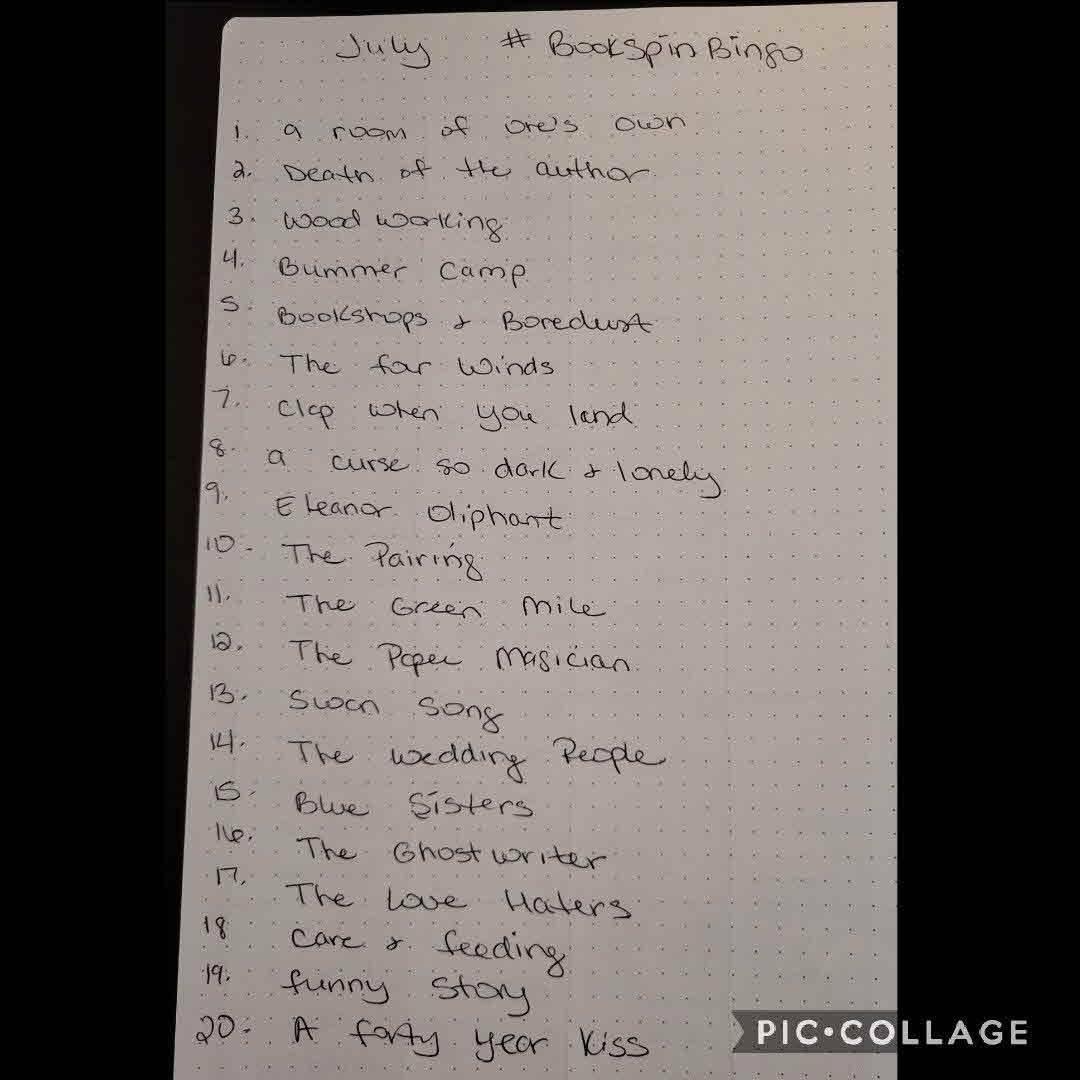 July # BookSpinBingo
1. a room of one's own
2. Death of the author
3. Wood working
4. Bummer Camp
5. Bookshops & Bonedust
6. The far Winds
7. Clap when you land
8. a curse so dark & lonely
9. Eleanor Oliphant
10. The Pairing
11. The Green Mile
12. The Paper Magician
13. Swan Song
14. The wedding People
15. Blue Sisters
16. The Ghostwriter
17. The Love Haters
18 Care & feeding
19. funny story
20. A forty year kiss
PIC•COLLAGE